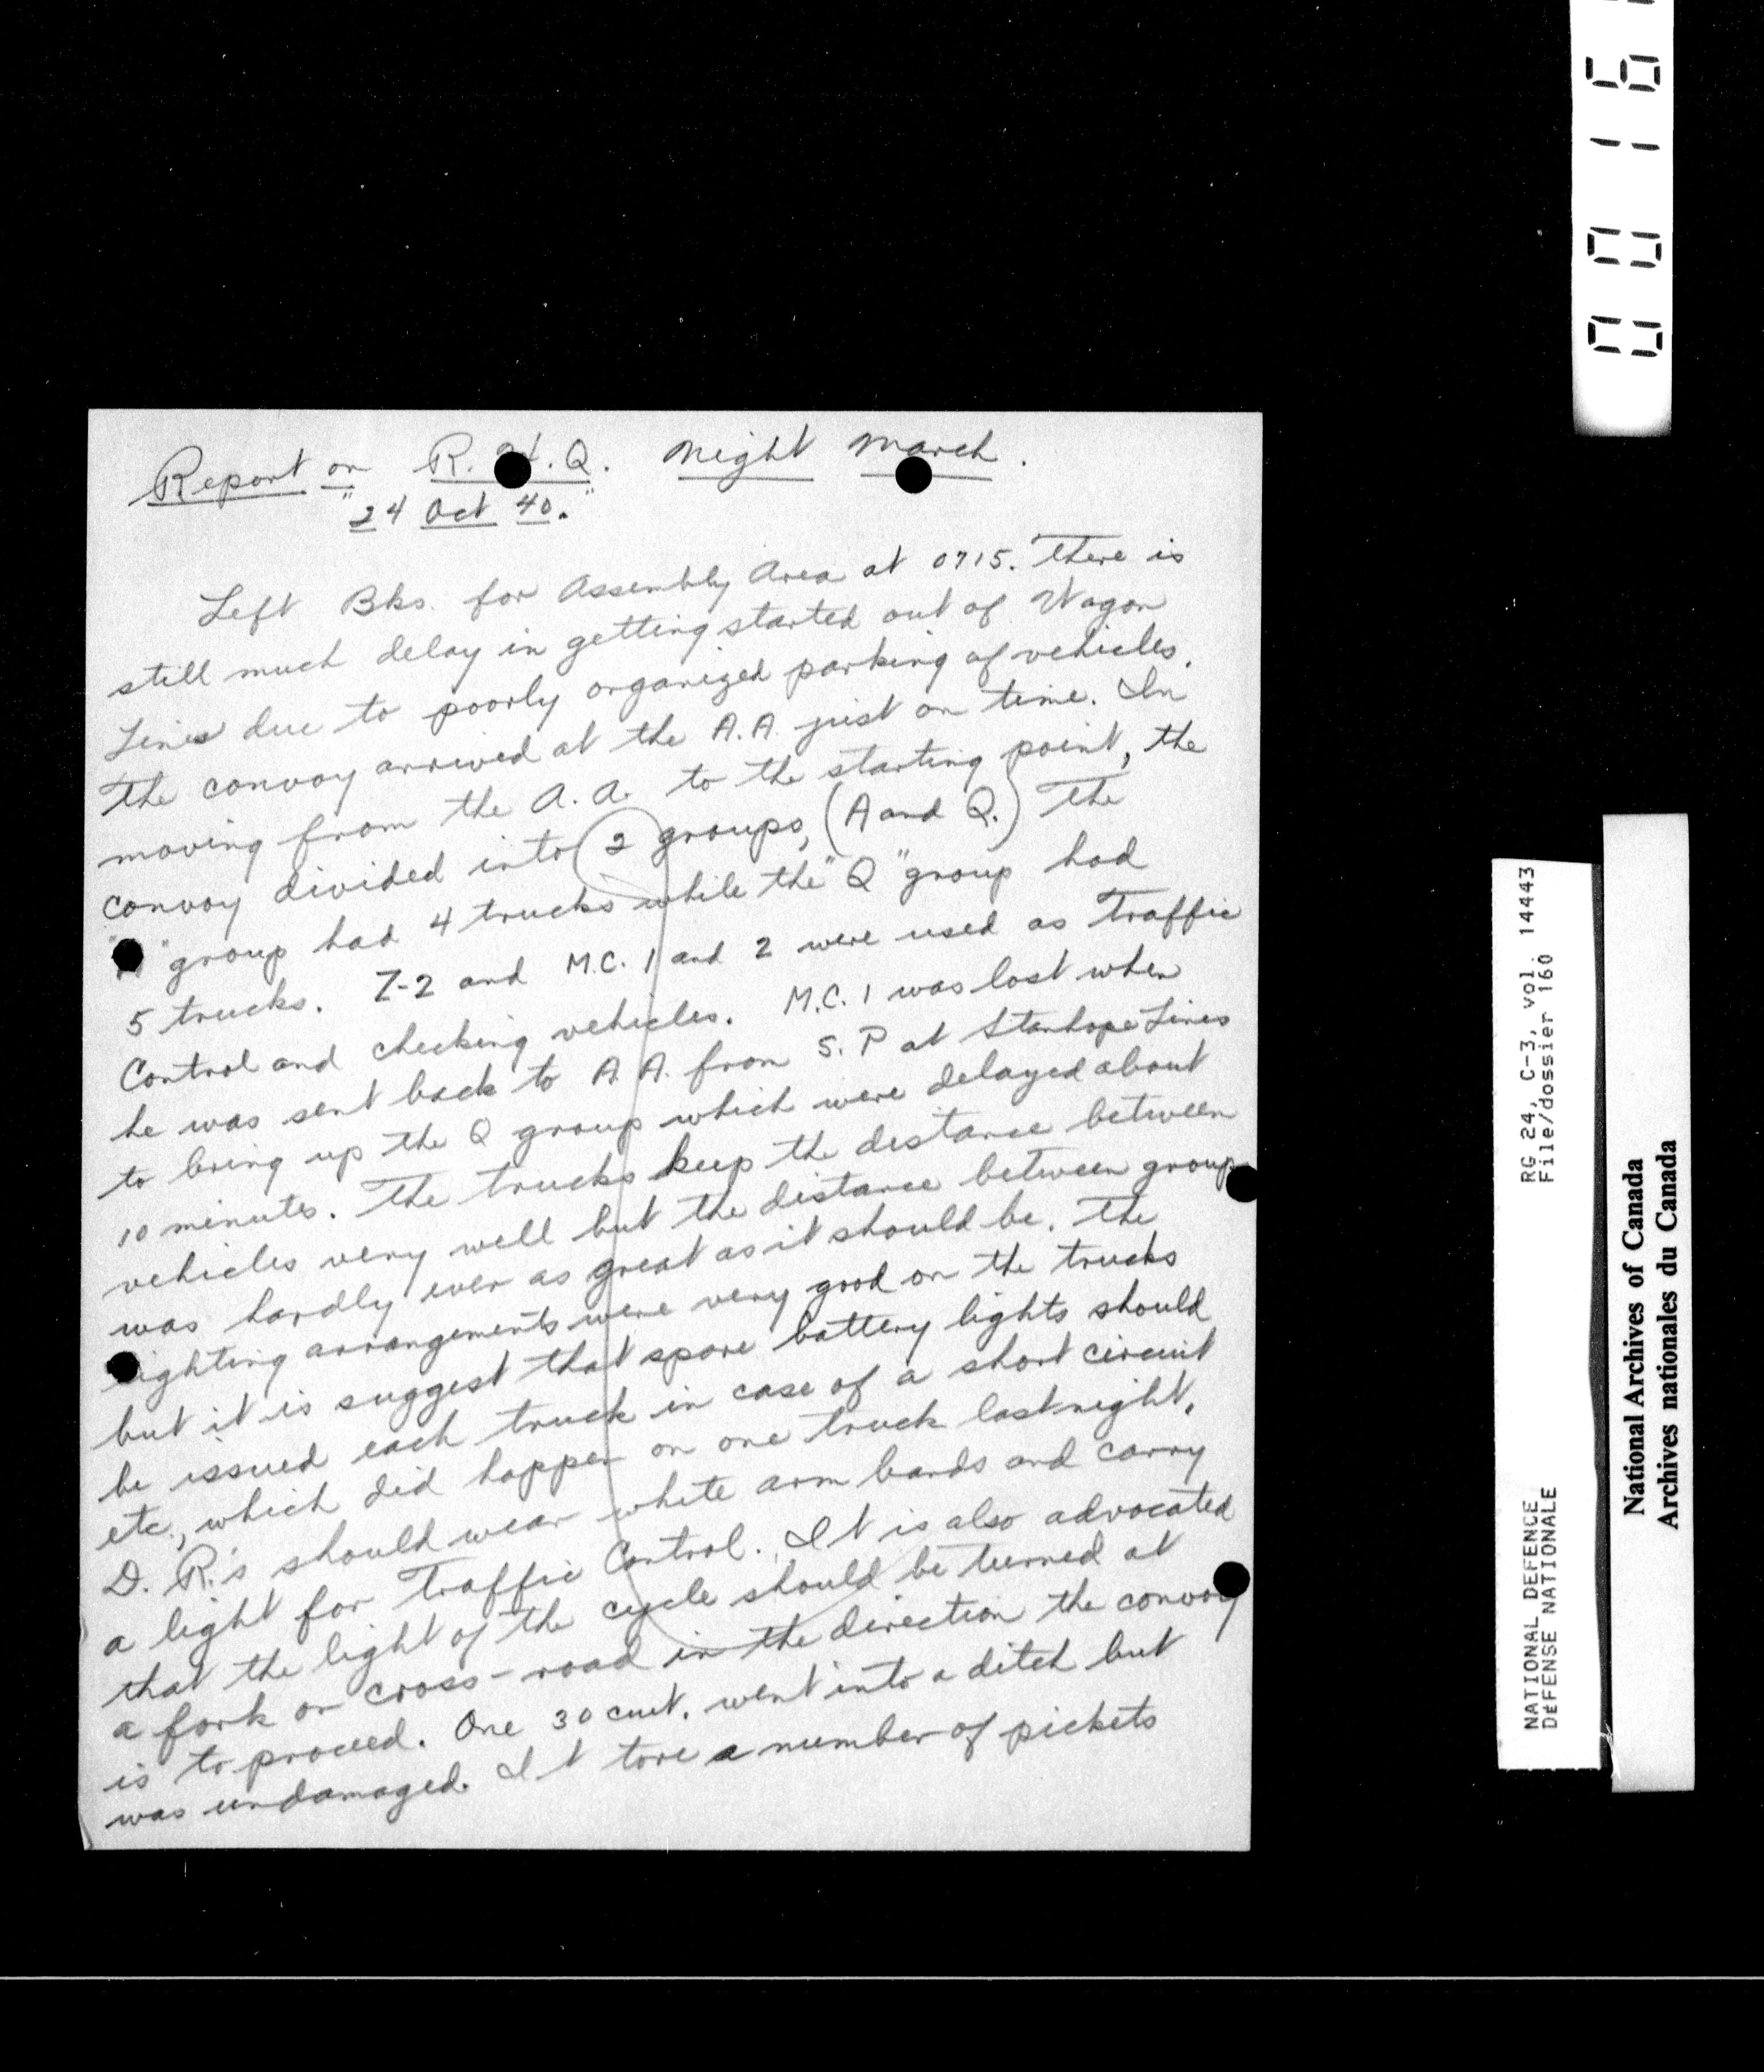 Report on R.H.Q. Night March.
"24 Oct 40."
Left Bks. for Assembly Area at 0715. There is
still much delay in getting started out of Wagon
Lines due to poorly organized parking of vehicles.
The convoy arrived at the A.A. just on time. In
moving from the A.A. to the starting point, the
convoy divided into 2 groups, (A and Q.) The
" " group had 4 trucks while the "Q" group had
5 trucks. Z-2 and M.C. 1 and 2 were used as Traffic
Control and checking vehicles. M.C. 1 was lost when
he was sent back to A.A. from S.P at Stanhope Lines
to bring up the Q group which were delayed about
10 minutes. The trucks keep the distance between
vehicles very well but the distance between group
was hardly ever as great as it should be. The
lighting arrangements were very good on the trucks
but it is suggest that spare battery lights should
be issued each truck in case of a short circuit
etc., which did happen on one truck last night.
D.R.'s should wear white arm bands and carry
a light for Traffic Control. It is also advocated
that the light of the cycle should be turned at
a fork or cross-road in the direction the convoy
is to proceed. One 30 cwt. went into a ditch but
was undamaged. It tore a number of pickets
RG 24, C-3, vol. 14443
File/dossier 160
NATIONAL DEFENCE
DÉFENSE NATIONALE
National Archives of Canada
Archives nationales du Canada